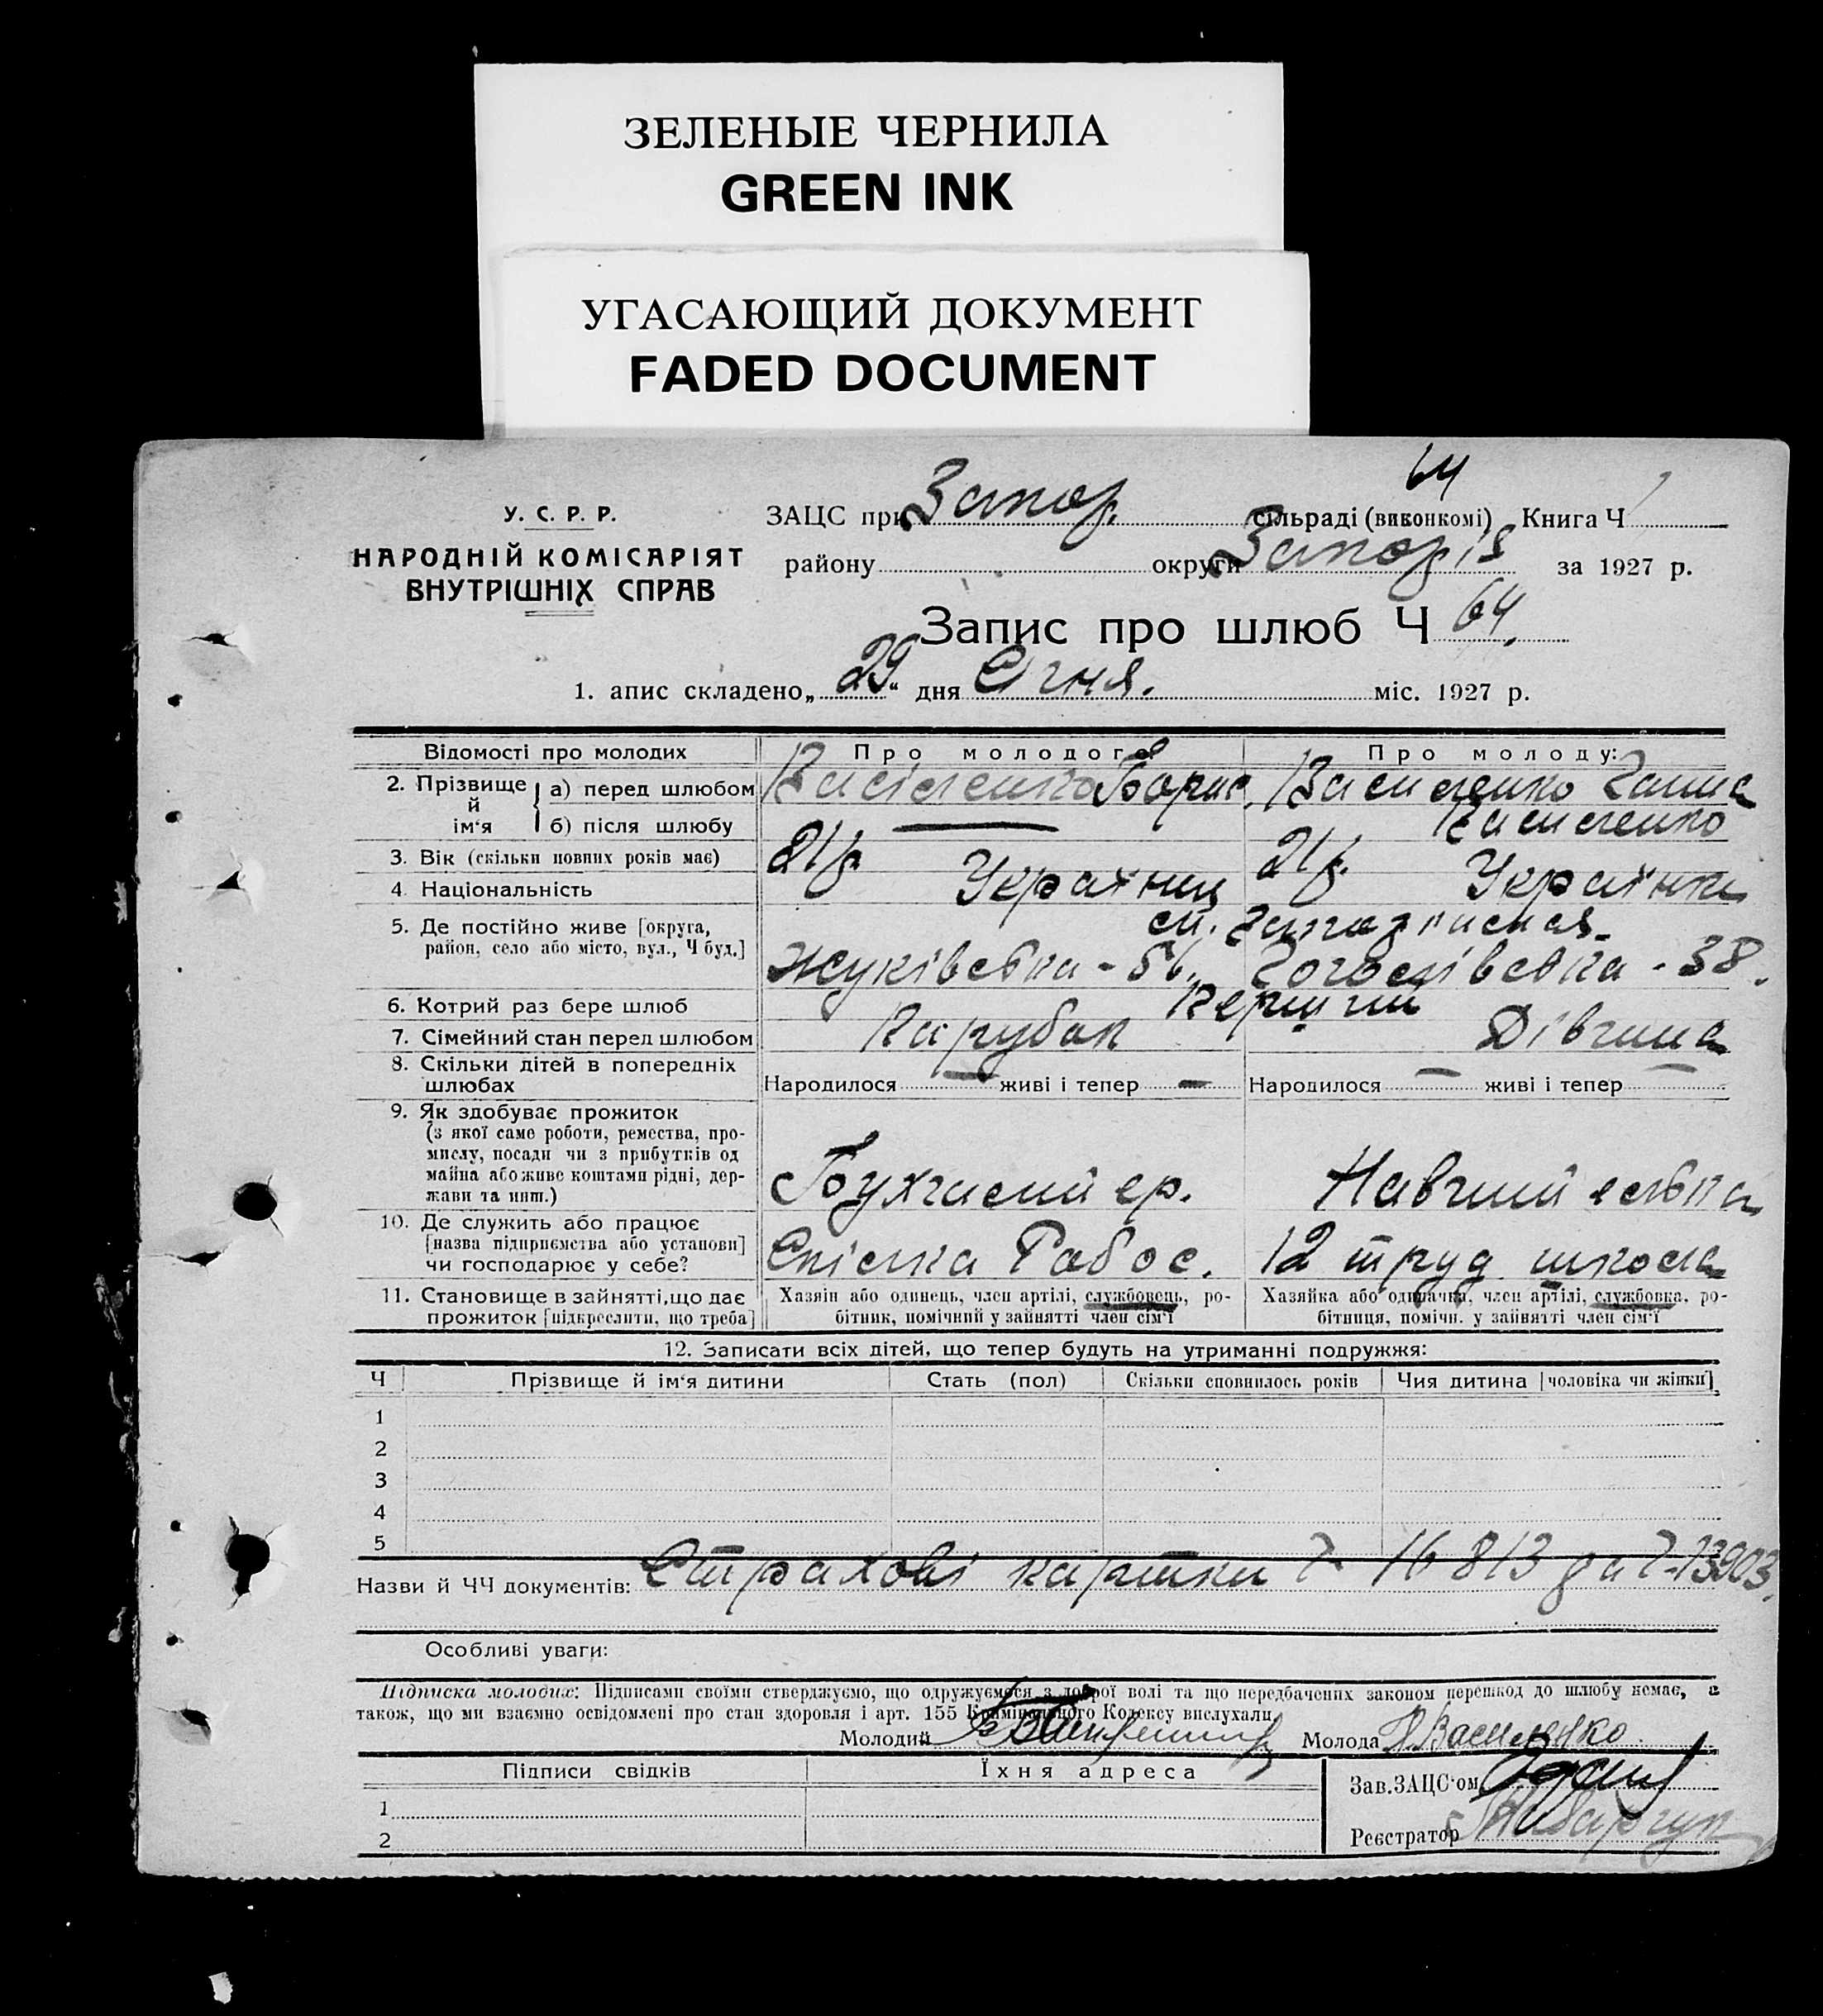 ЗЕЛЕНЫЕ ЧЕРНИЛА
GREEN INK
УГАСАЮЩИЙ ДОКУМЕНТ
FADED DOCUMENT
64
У. С. Р. Р.
НАРОДНІЙ КОМІСАРІЯТ
ВНУТРІШНІХ СПРАВ
ЗАЦС при Запор. сільраді (виконкомі) Книга Ч
району округи Запоріз за 1927 р.
Запис про шлюб Ч 64.
1. апис складено „29“ дня Січня. міс. 1927 р.
Відомості про молодих Про молодого Про молоду:
2. Прізвище й ім‘я а) перед шлюбом Василенко Борис. Василенко Ганна
б) після шлюбу Василенко
3. Вік (скільки повних років має) 21 р. 21 р.
4. Національність Українец Українка
5. Де постійно живе [округа, район, село або місто, вул., Ч буд.]
Жуківська - 56. Гоголівська - 38.
6. Котрий раз бере шлюб Перший
7. Сімейний стан перед шлюбом Парубок Дівчина
8. Скільки дітей в попередніх шлюбах Народилося — живі і тепер — Народилося — живі і тепер —
9. Як здобуває прожиток
(з якої саме роботи, ремества, про-
мислу, посади чи з прибутків од
майна або живе коштами рідні, дер-
жави та инш.)
Бухгалтер. Навчителька
10. Де служить або працює
[назва підприємства або установи]
чи господарює у себе?
Спілка Робос. 12 труд. школа
11. Становище в зайнятті, що дає
прожиток [підкреслити, що треба]
Хазяін або одинець, член артілі, службовець, ро-
бітник, помічний у зайнятті член сім‘ї
Хазяйка або одиначка, член артілі, службовка, ро-
бітниця, помічн. у зайнятті член сім‘ї
12. Записати всіх дітей, що тепер будуть на утриманні подружжя:
Ч Прізвище й ім‘я дитини Стать (пол) Скільки сповнилось років Чия дитина [чоловіка чи жінки]
1
2
3
4
5
Назви й ЧЧ документів: Страхові картки Ч 16813 да Ч-13903.
Особливі уваги:
Підписка молодих: Підписами своїми стверджуємо, що одружуємося з доброї волі та що передбачених законом перешкод до шлюбу немає, а
також, що ми взаємно освідомлені про стан здоровля і арт. 155 Кримінального Кодексу вислухали.
Молодий Молода Г. Василенко
Підписи свідків Їхня адреса
Зав.ЗАЦС‘ом
1
2
Реєстратор